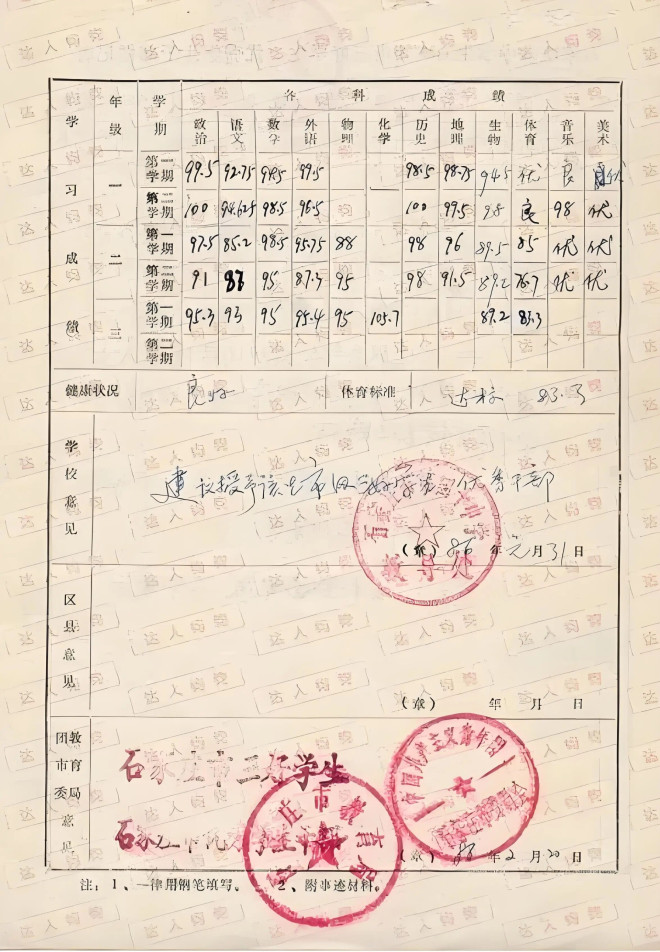 学习成绩 年级 学期 各科成绩
政治 语文 数学 外语 物理 化学 历史 地理 生物 体育 音乐 美术
一 第一学期 99.5 92.75 99.5 98.5 98.75 94.5 优 良 优
第二学期 100 94.625 98.5 96.5 100 99.5 98 良 98 优
二 第一学期 97.5 85.2 98.5 95.75 88 98 96 89.5 85 优 优
第二学期 91 87 95 87.3 95 98 91.5 89.2 76.7 优 优
三 第一学期 95.3 93 95 95.4 95 105.7 87.2 83.3
第二学期
健康状况 良好 体育标准 达标 83.3
学校意见
建议授予该生市级三好学生 优秀干部
教导处
(章) 86年元月31日
区县意见
(章) 年 月 日
教育局团市委意见
中国共产主义青年团
石家庄市三好学生
庄市教育局
石家庄市优秀学生干部
(章) 86年2月20日
注:1、一律用钢笔填写。 2、附事迹材料。
达人钧赞